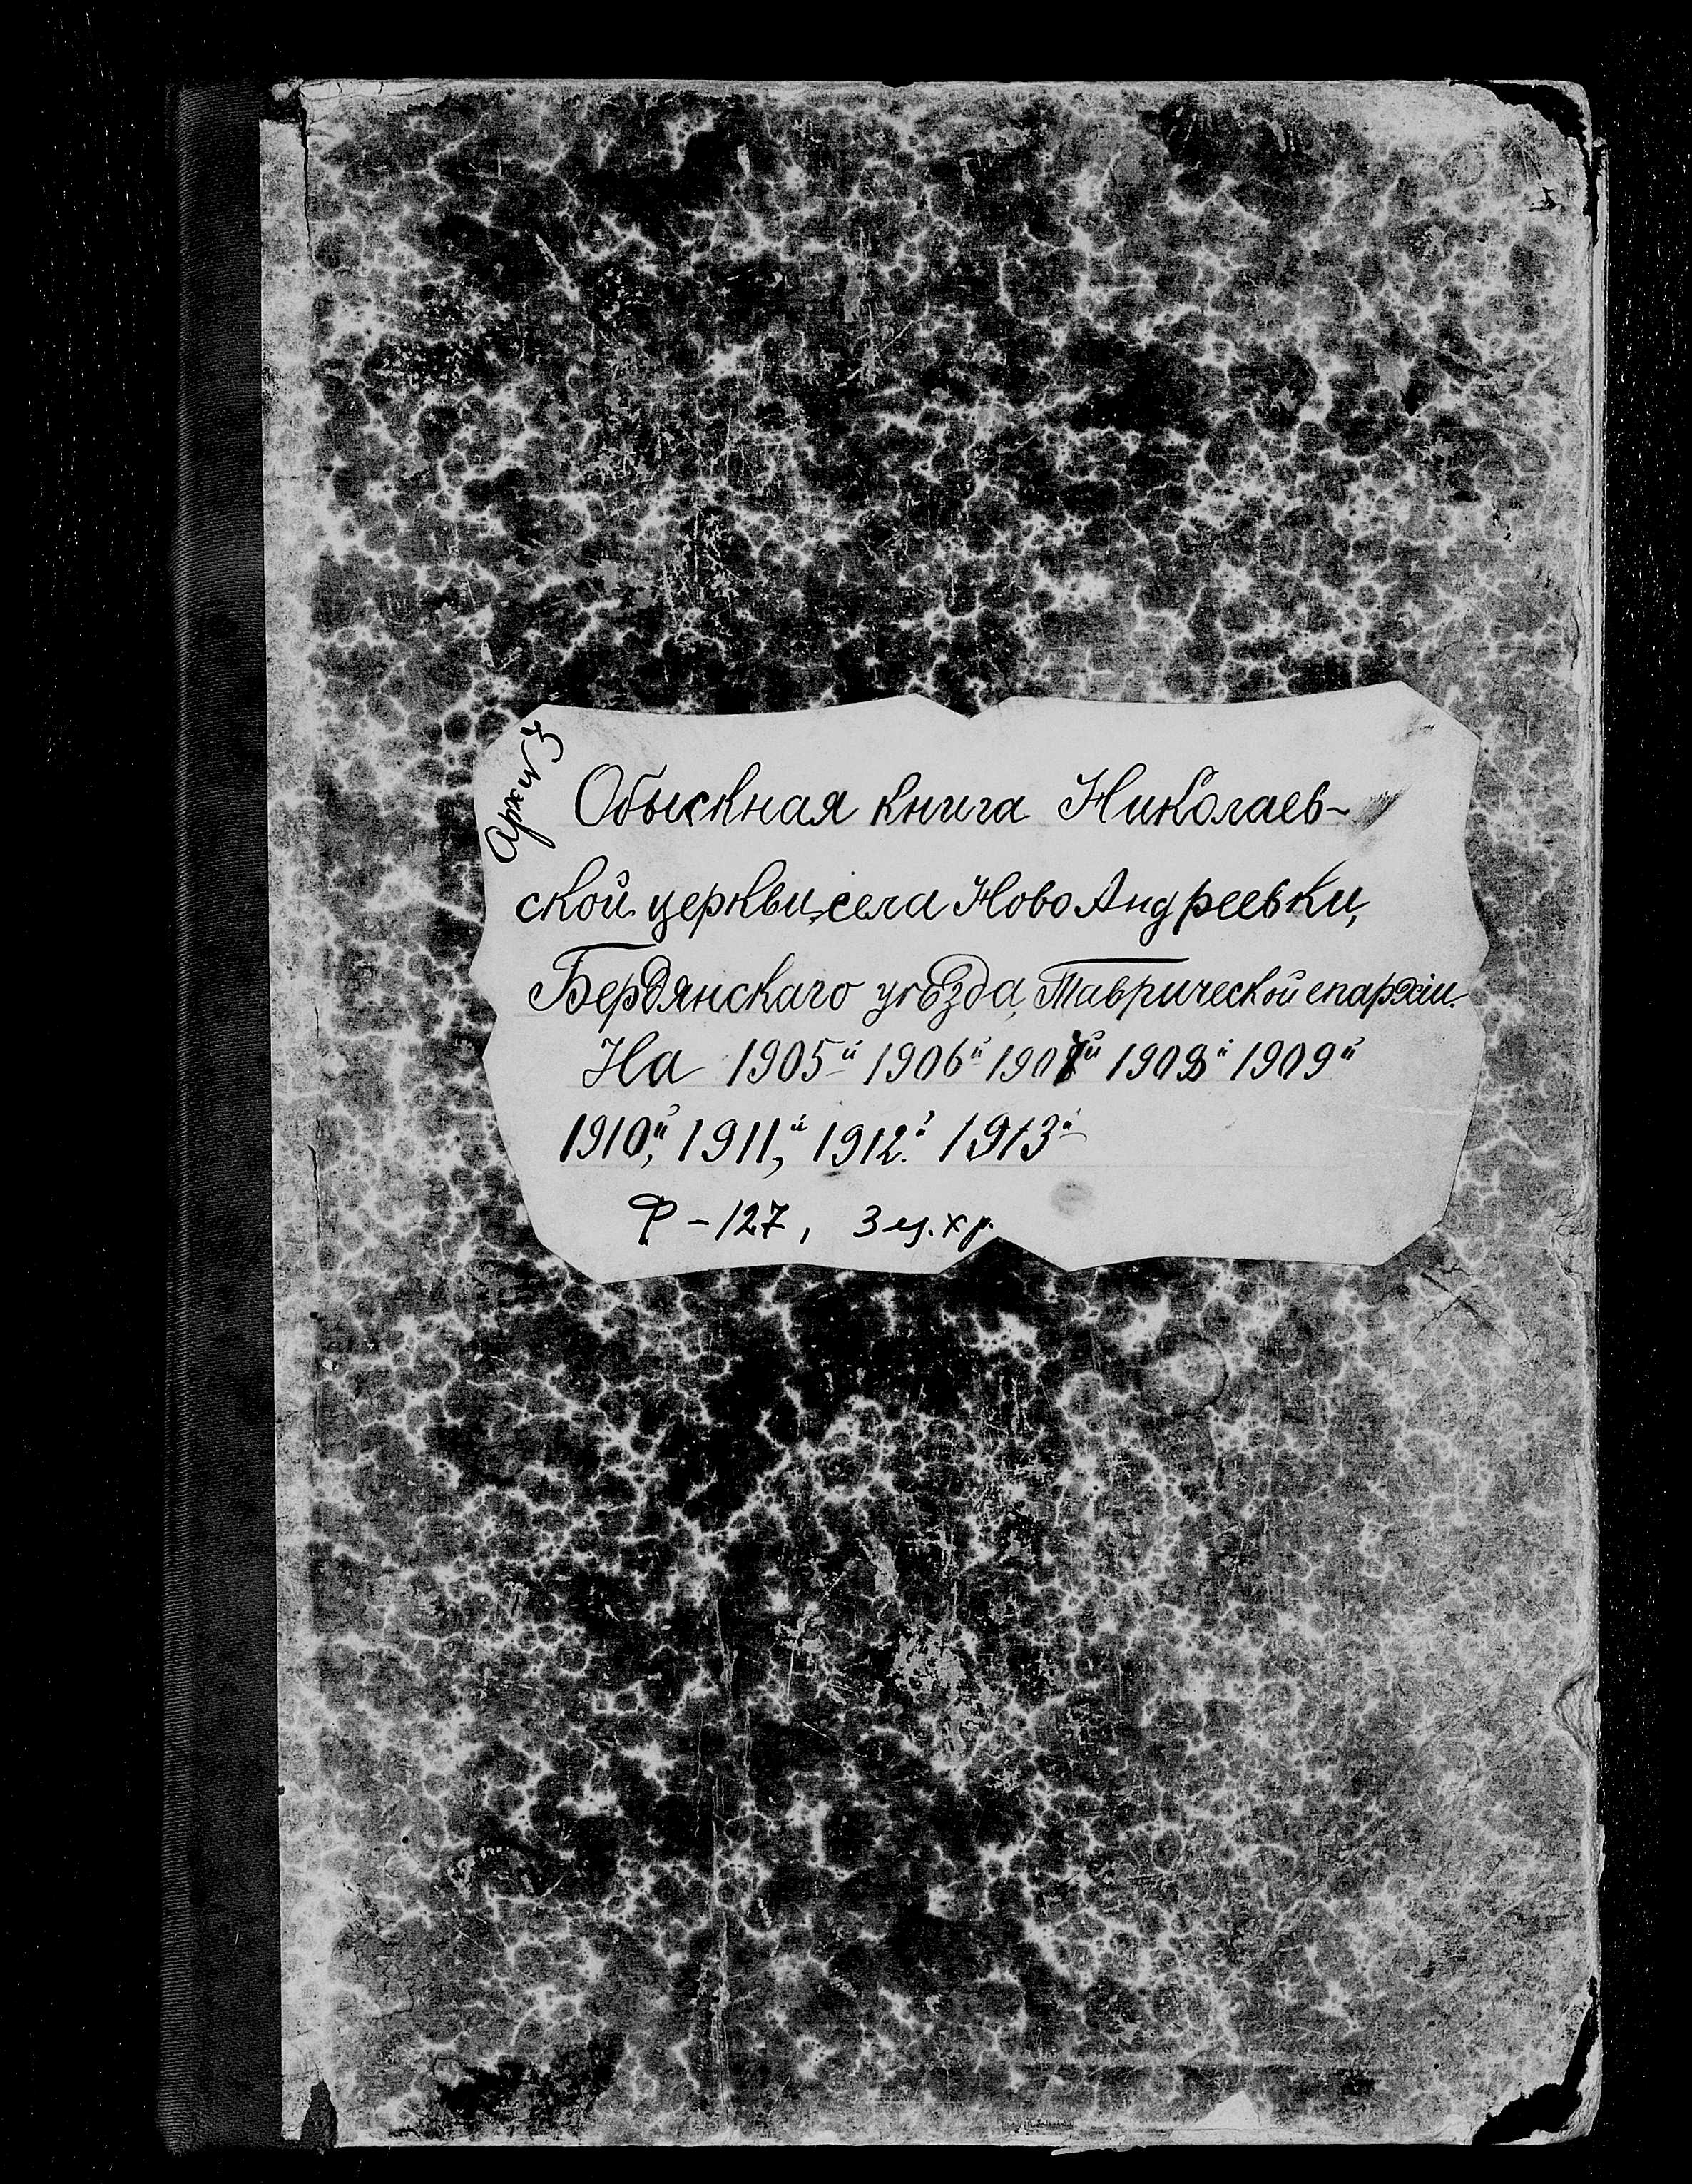 Обыскная книга Николаев-
ской церкви, села Ново Андреевки,
Бердянскаго уѣзда, Таврической епархіи.
На 1905й 1906й 1907й 1908й 1909й
1910й, 1911,й 1912.й 1913й
Ф-127, 3 ед. хр.